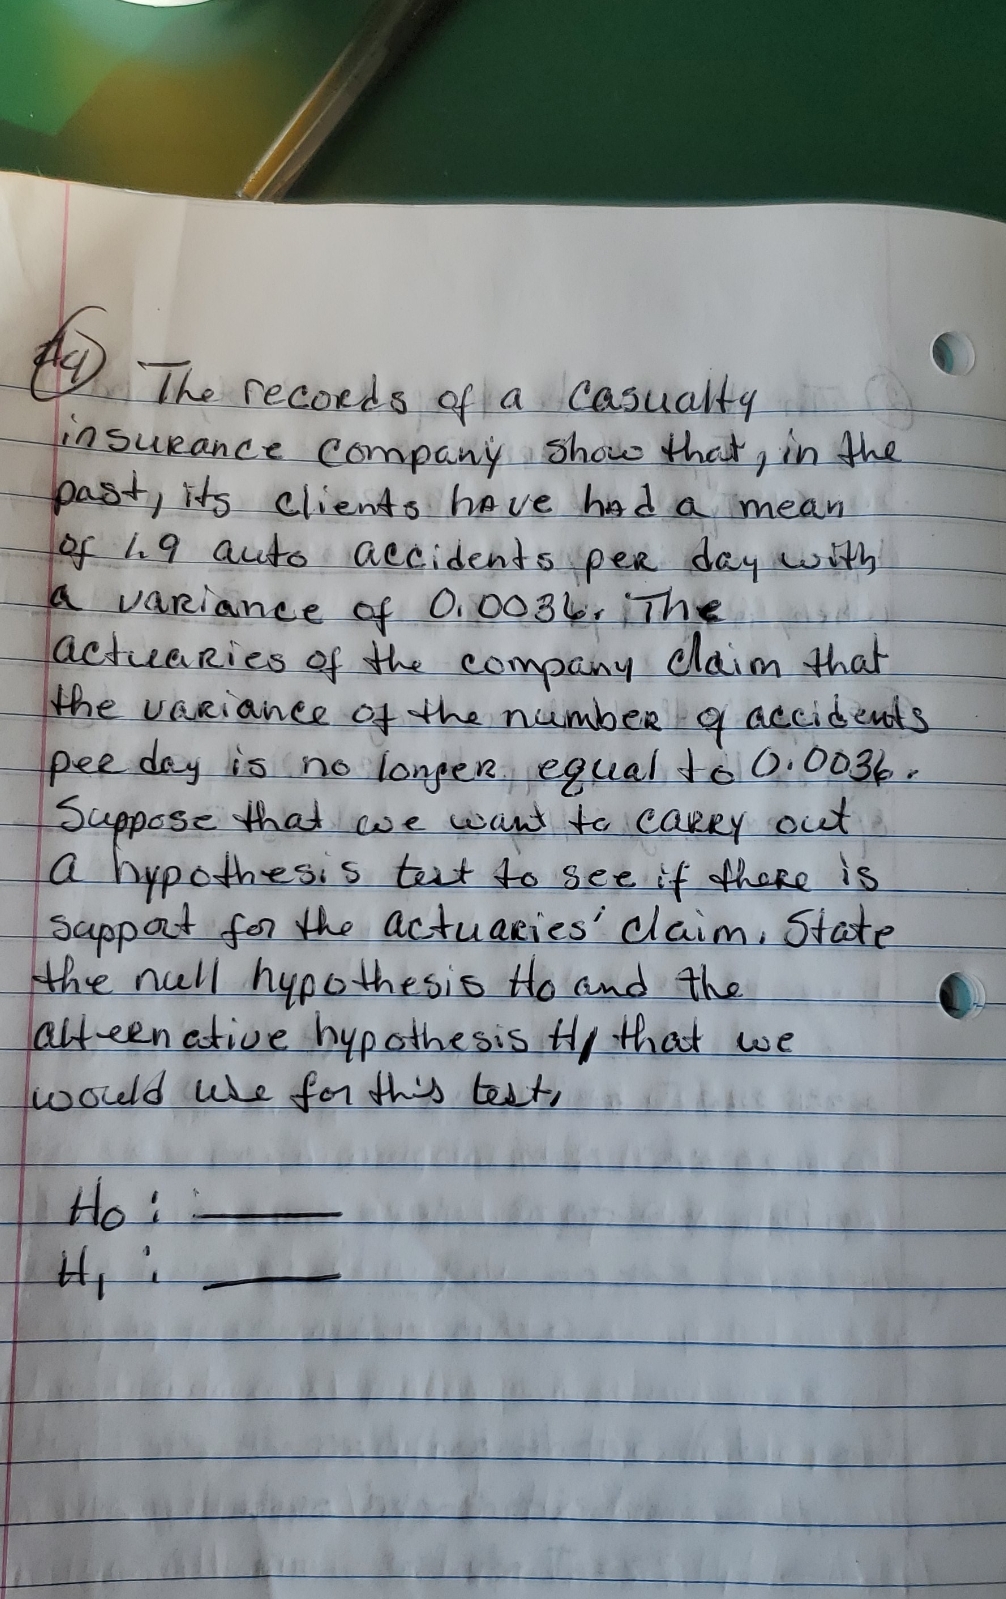 #4) The records of a casualty
insurance company show that, in the
past, its clients have had a mean
of 1.9 auto accidents per day with
a variance of 0.0036. The
actuaries of the company claim that
the variance of the number of accidents
per day is no longer equal to 0.0036.
Suppose that we want to carry out
a hypothesis test to see if there is
support for the actuaries' claim. State
the null hypothesis Ho and the
alternative hypothesis H1 that we
would use for this test.
Ho :
H1 :